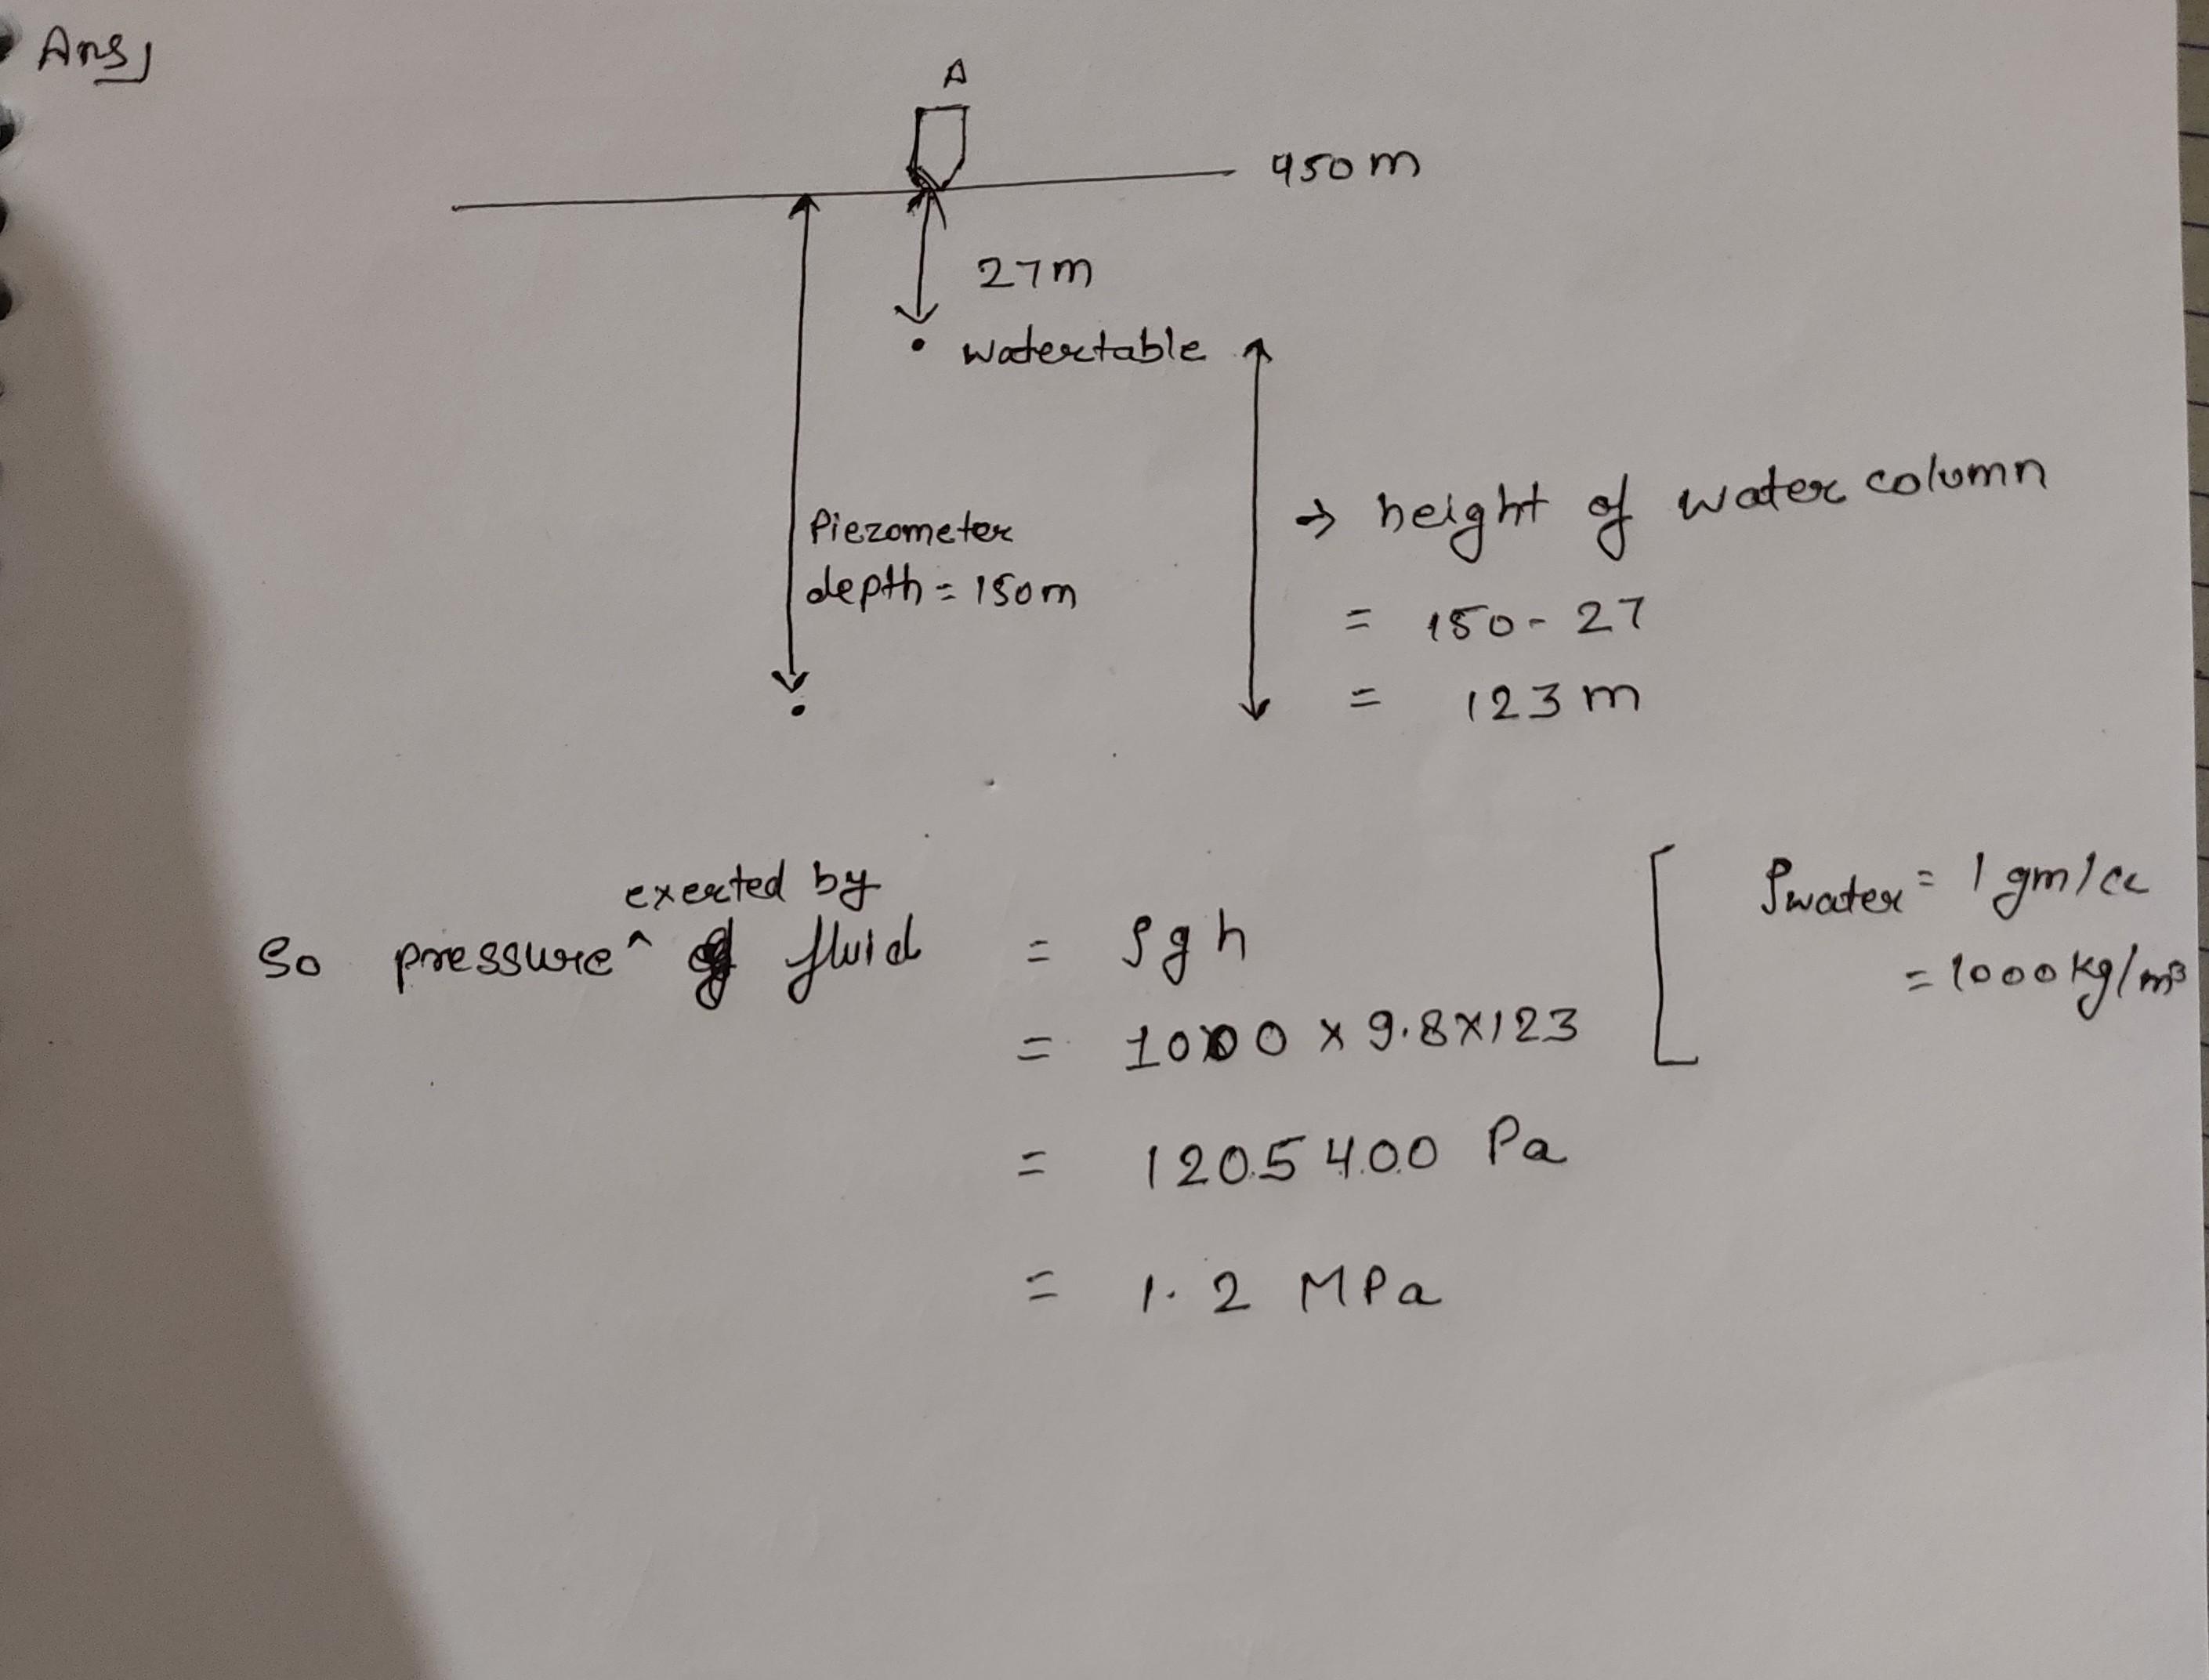 Ans,
A
450 m
27m
watertable
Piezometer
depth = 150m
→ height of water column
= 150 - 27
= 123 m
exerted by
So pressure ^ fluid = ρgh
= 1000 x 9.8x123
= 1205400 Pa
= 1.2 MPa
ρwater = 1 gm/cc
= 1000 kg/m³